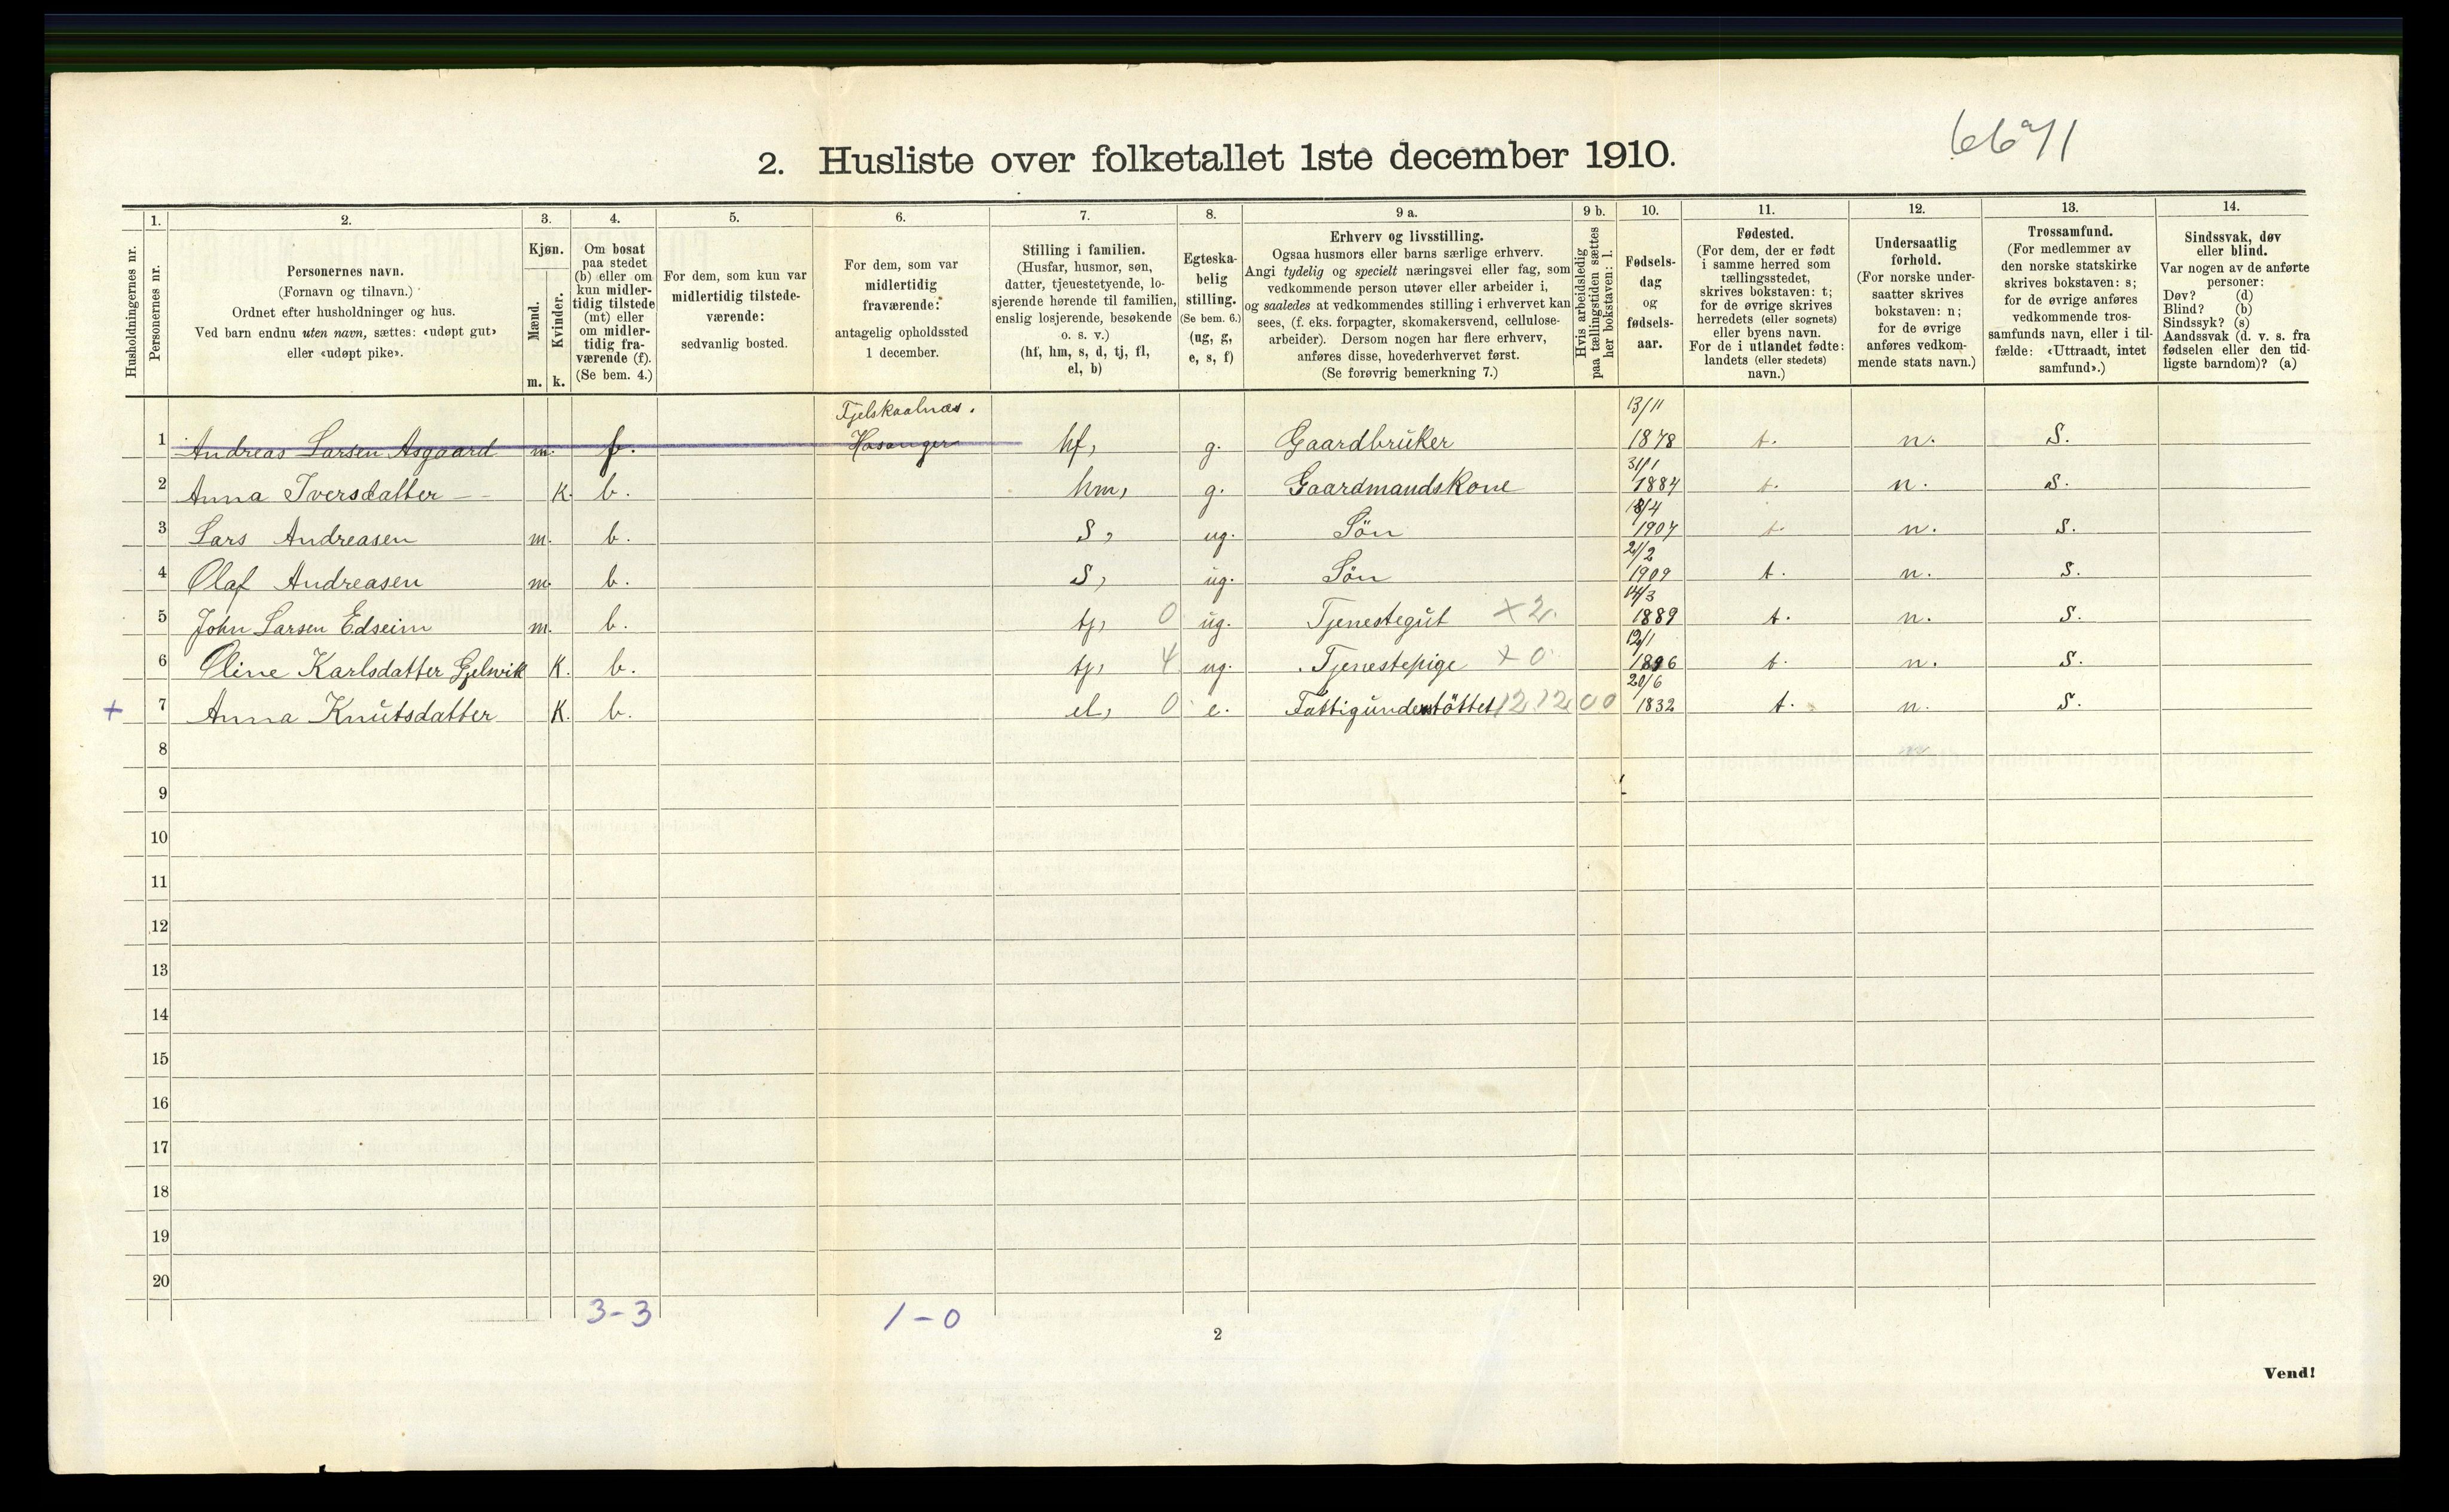 2. Husliste over folketallet 1ste december 1910.
1. 2. 3. 4. 5. 6. 7. 8. 9 a. 9 b. 10. 11. 12. 13. 14.
Husholdningernes nr.
Personernes nr.
Personernes navn.
(Fornavn og tilnavn.)
Ordnet efter husholdninger og hus.
Ved barn endnu uten navn, sættes: «udøpt gut»
eller «udøpt pike».
Kjøn.
Mænd.
Kvinder.
m. k.
Om bosat
paa stedet
(b) eller om
kun midler-
tidig tilstede
(mt) eller
om midler-
tidig fra-
værende (f).
(Se bem. 4.)
For dem, som kun var
midlertidig tilstede-
værende:
sedvanlig bosted.
For dem, som var
midlertidig
fraværende:
antagelig opholdssted
1 december.
Stilling i familien.
(Husfar, husmor, søn,
datter, tjenestetyende, lo-
sjerende hørende til familien,
enslig losjerende, besøkende
o. s. v.)
(hf, hm, s, d, tj, fl,
el, b)
Egteska-
belig
stilling.
(Se bem. 6.)
(ug, g,
e, s, f)
Erhverv og livsstilling.
Ogsaa husmors eller barns særlige erhverv.
Angi tydelig og specielt næringsvei eller fag, som
vedkommende person utøver eller arbeider i,
og saaledes at vedkommendes stilling i erhvervet kan
sees, (f. eks. forpagter, skomakersvend, cellulose-
arbeider). Dersom nogen har flere erhverv,
anføres disse, hovederhvervet først.
(Se forøvrig bemerkning 7.)
Hvis arbeidsledig
paa tællingstiden sættes
her bokstaven: l.
Fødsels-
dag
og
fødsels-
aar.
Fødested.
(For dem, der er født
i samme herred som
tællingsstedet,
skrives bokstaven: t;
for de øvrige skrives
herredets (eller sognets)
eller byens navn.
For de i utlandet fødte:
landets (eller stedets)
navn.)
Undersaatlig
forhold.
(For norske under-
saatter skrives
bokstaven: n;
for de øvrige
anføres vedkom-
mende stats navn.)
Trossamfund.
(For medlemmer av
den norske statskirke
skrives bokstaven: s;
for de øvrige anføres
vedkommende tros-
samfunds navn, eller i til-
fælde: «Uttraadt, intet
samfund».)
Sindssvak, døv
eller blind.
Var nogen av de anførte
personer:
Døv? (d)
Blind? (b)
Sindssyk? (s)
Aandssvak (d. v. s. fra
fødselen eller den tid-
ligste barndom)? (a)
Fjelskaalnæs. 13/11
1 Andreas Larsen Asgaard m. f. Hosanger hf, g. Gaardbruker 1878 t. n. S.
31/1
2 Anna Iversdatter - - K. b. hm, g. Gaardmandskone 1884 t. n. S.
18/4
3 Lars Andreasen m. b. S, ug. Søn 1907 t. n. S.
21/2
4 Olaf Andreasen m. b. S, ug. Søn 1909 t. n. S.
14/3
5 John Larsen Edseim m. b. tj, 0 ug. Tjenestegut x 2. 1889 t. n. S.
12/1
6 Oline Karlsdatter Gjelvik K. b. tj, 4 ug. Tjenestepige x 0 1896 t. n. S.
20/6
+ 7 Anna Knutsdatter K. b. el, 0 e. Fattigunderstöttet 12.12.00 1832 t. n. S.
8
9
10
11
12
13
14
15
16
17
18
19
20
3-3 1-0
2
Vend!